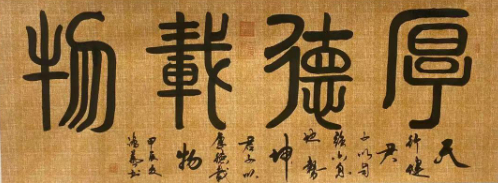 厚德載物
天
行健
君
子以自
强不息
地勢
坤
君子以
厚德載
物
甲辰
书